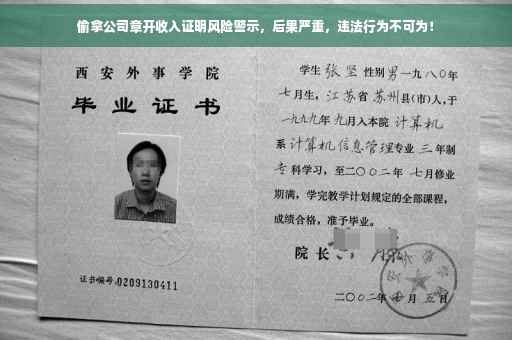 偷拿公司章开收入证明风险警示，后果严重，违法行为不可为！
西安外事学院
毕业证书
证书编号:0209130411
学生 张坚 性别男一九八〇年
七月生，江苏省 苏州县(市)人，于
一九九九年九月入本院 计算机
系 计算机信息管理专业 三年制
专科学习，至二〇〇二年 七月修业
期满，学完教学计划规定的全部课程，
成绩合格，准予毕业。
院长
二〇〇二年 月五日